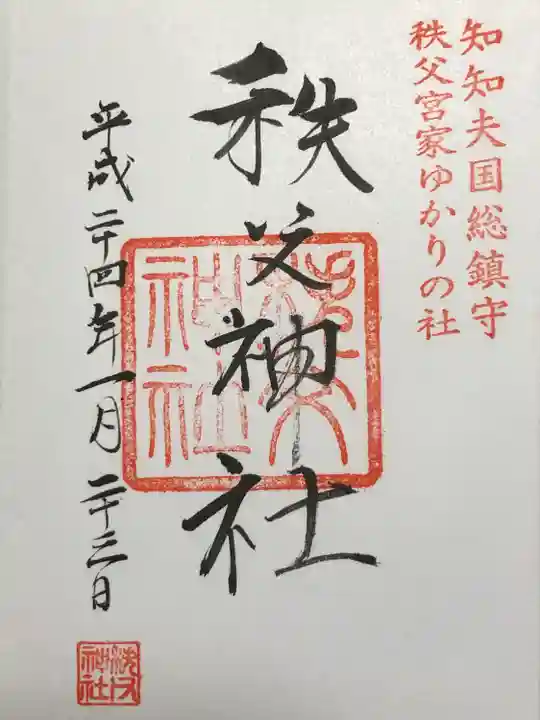 知知夫国総鎮守
秩父宮家ゆかりの社
秩父神社
秩父神社
平成二十四年一月二十三日
秩父神社